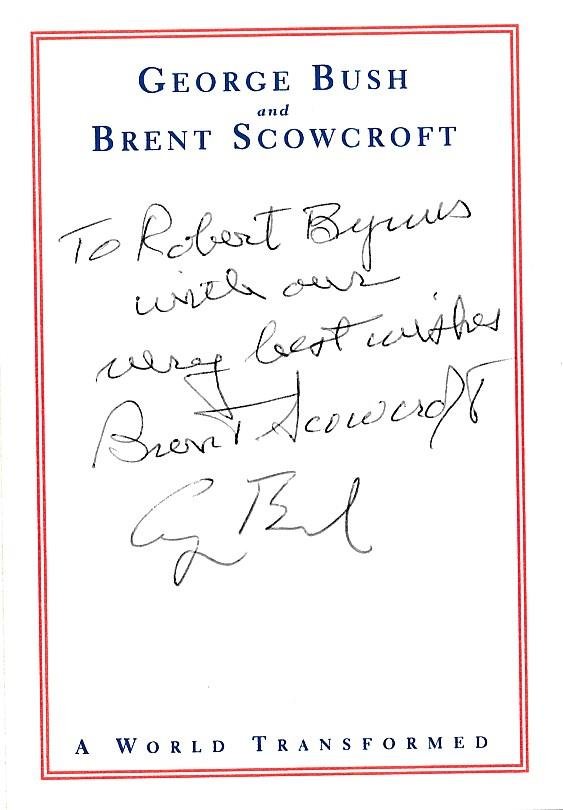 GEORGE BUSH
and
BRENT SCOWCROFT
To Robert Byrnes
with our
very best wishes
Brent Scowcroft
G Bush
A WORLD TRANSFORMED